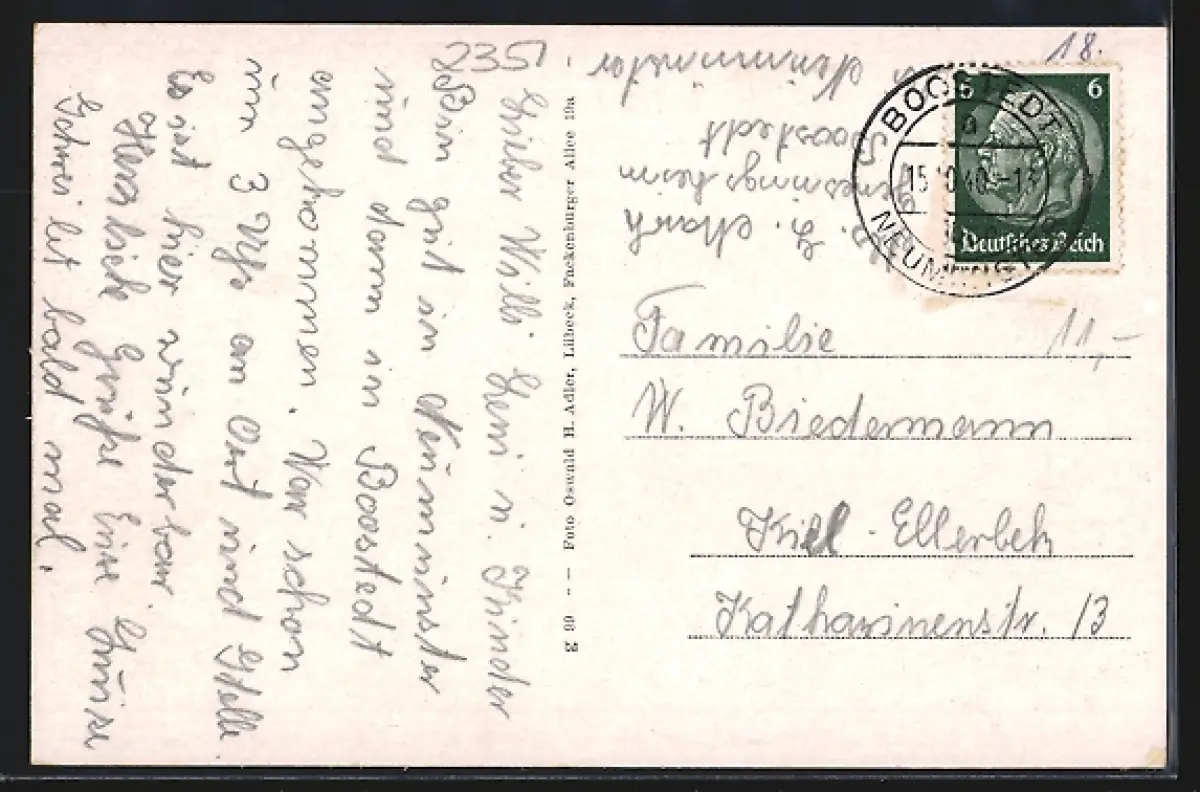 2351
Lieber Willi Heini u. Kinder
Bin gut in Neumünster
und dann in Boostedt
angekommen. War schon
um 3 Uhr an Ort und Stelle.
Es ist hier wunderbar.
Herzliche Grüße Eure
Schreibt bald mal.
g 99 -- Foto Oswald H. Adler, Lübeck, Fackenburger Allee 10a
Boostedt
Neumünster
18.
BOOSTEDT
a
15.10.40
NEUMÜNSTER
6 6
Deutsches Reich
Familie
11,-
W. Biedermann
Kiel-Ellerbek
Katharinenstr. 13